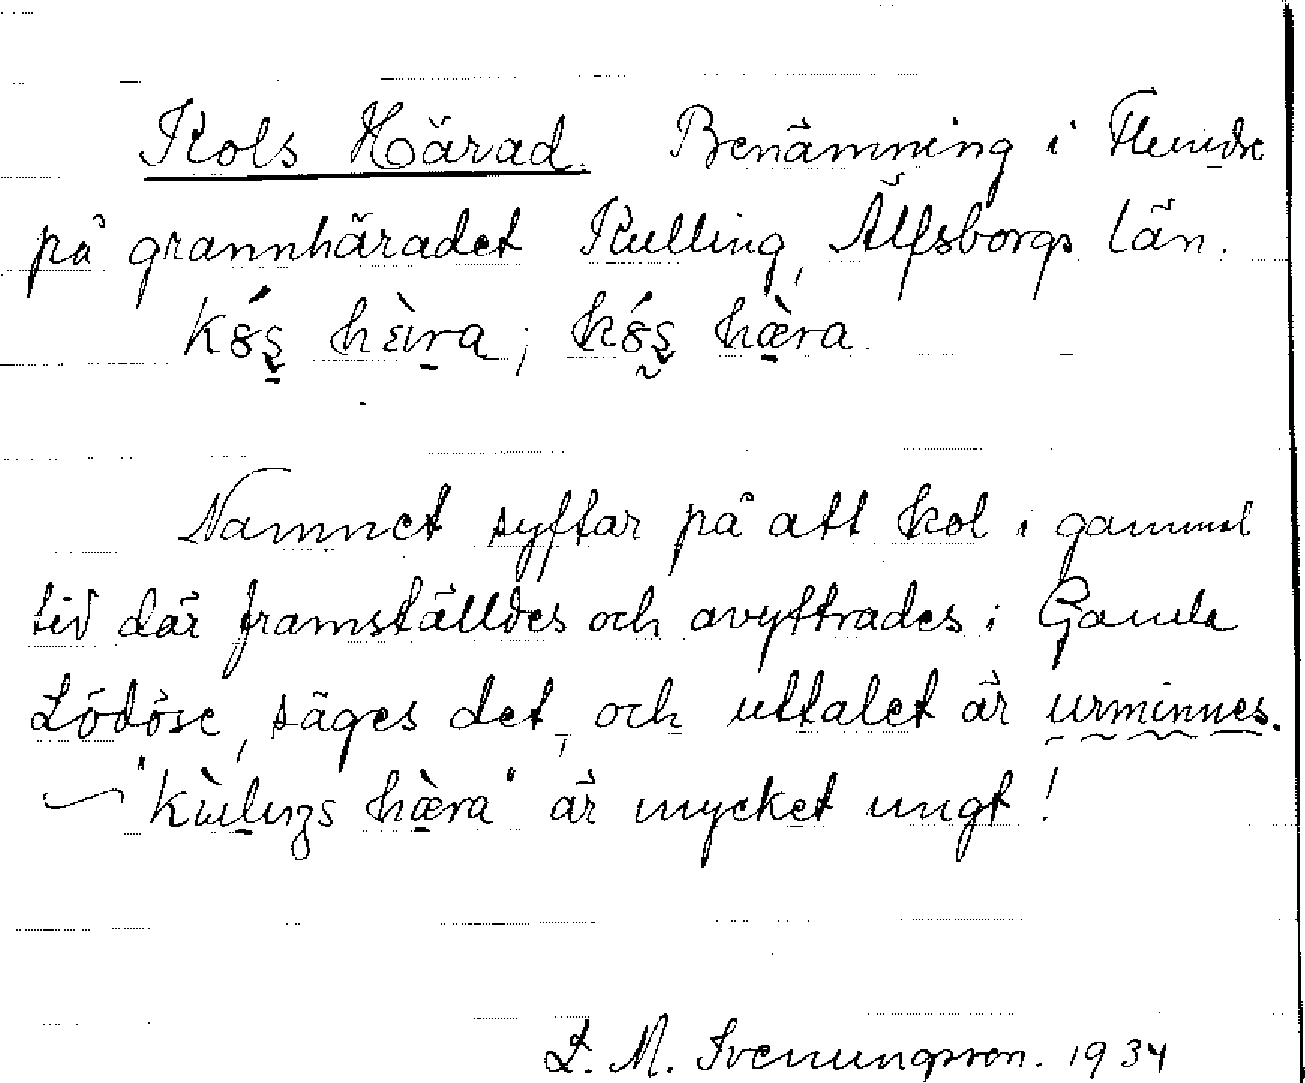 Kols Härad. Benämning i Flundre
på grannhäradet Kulling, Älfsborgs län.
Namnet syftar på att kol i gammal
tid där framställdes och avyttrades i Gamla
Lödöse, säges det, och uttalet är urminnes.
är mycket ungt!
L. M. Svenungsson. 1934